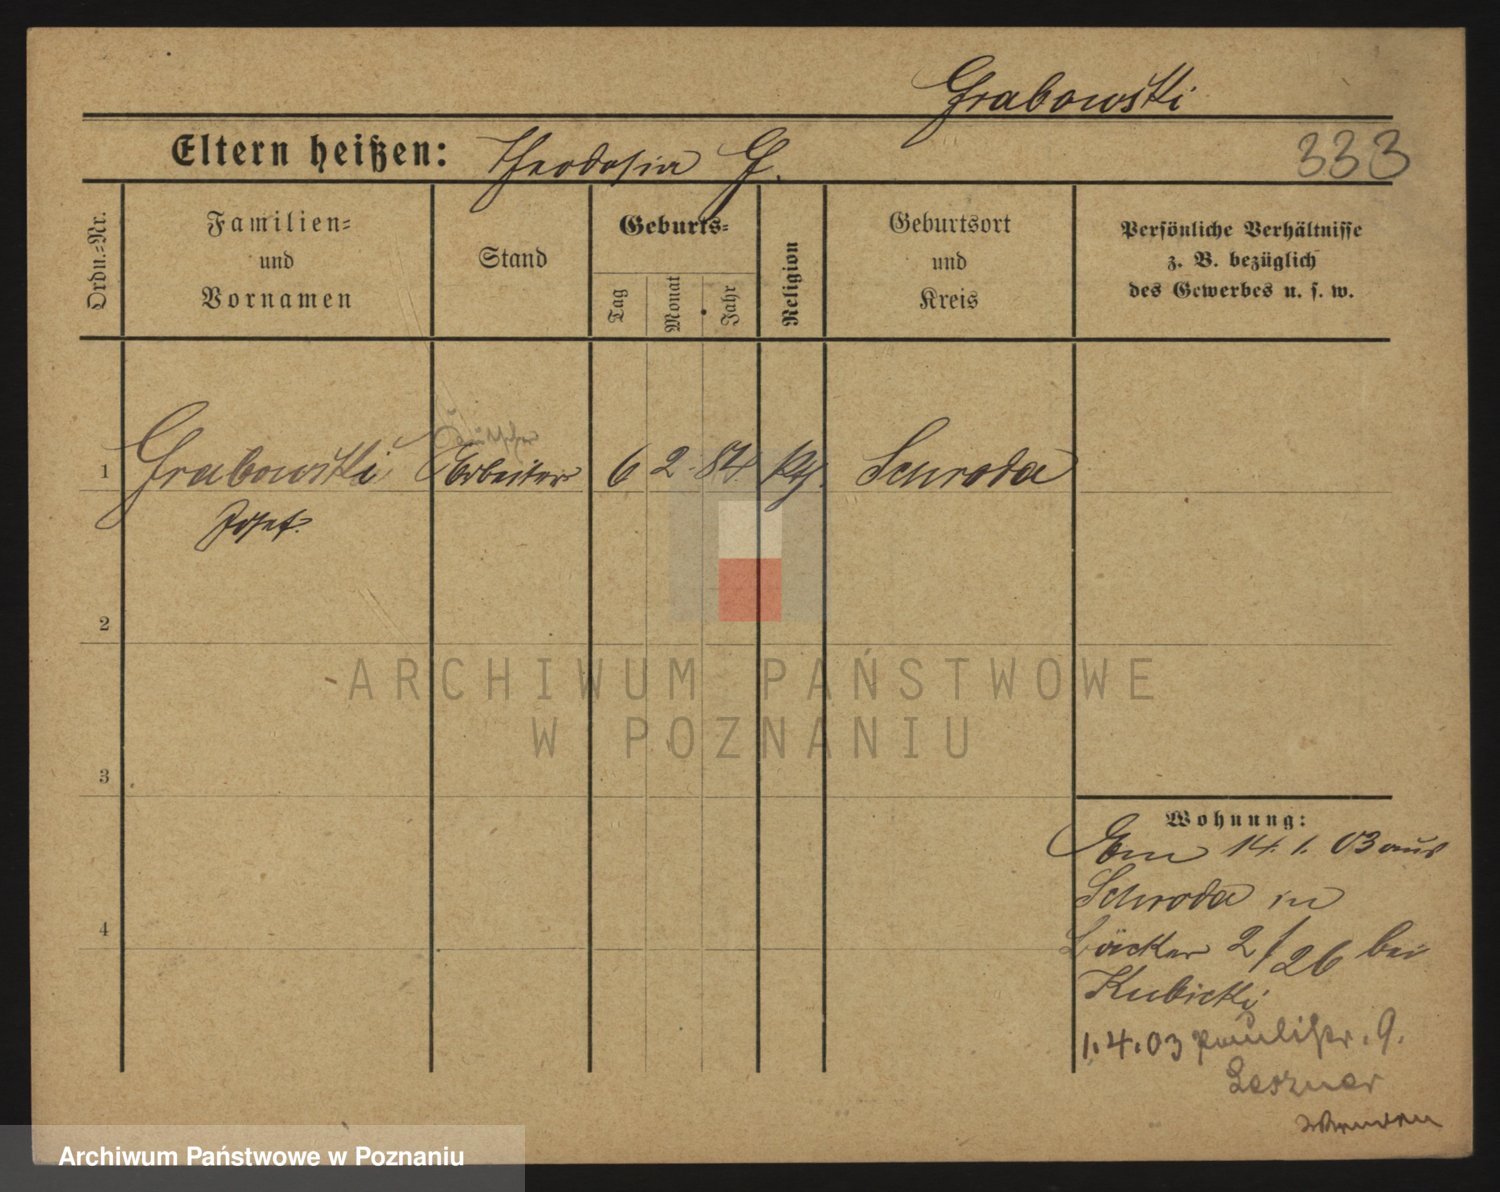 Grabowski
Eltern heißen: Theodosia G.
333
Ordn.=Nr.
Familien=
und
Vornamen
Stand
Geburts=
Tag
Monat
Jahr
Religion
Geburtsort
und
Kreis
Persönliche Verhältnisse
z. B. bezüglich
des Gewerbes u. s. w.
1 Grabowski Arbeiter 6 2. 84. Schroda
Josef.
2
3
4
ARCHIWUM PAŃSTWOWE
W POZNANIU
Wohnung:
14. 1. 03 aus
Schroda in
Bäcker 2/26 bei
Kubicki
1.4.03 Paulistr. 9.
Archiwum Państwowe w Poznaniu